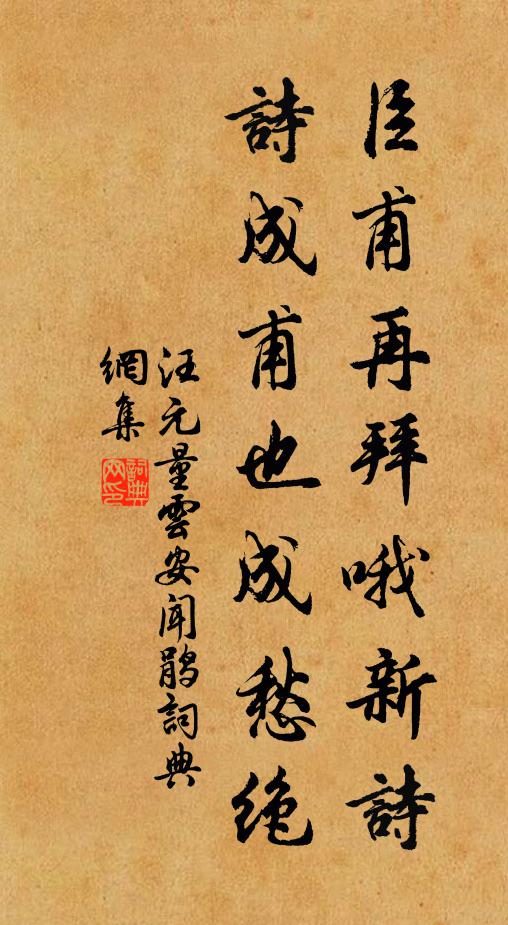 臣甫再拜哦新詩
詩成甫也成愁絕
汪元量雲安聞鵑詞典
網集
詞典
网印